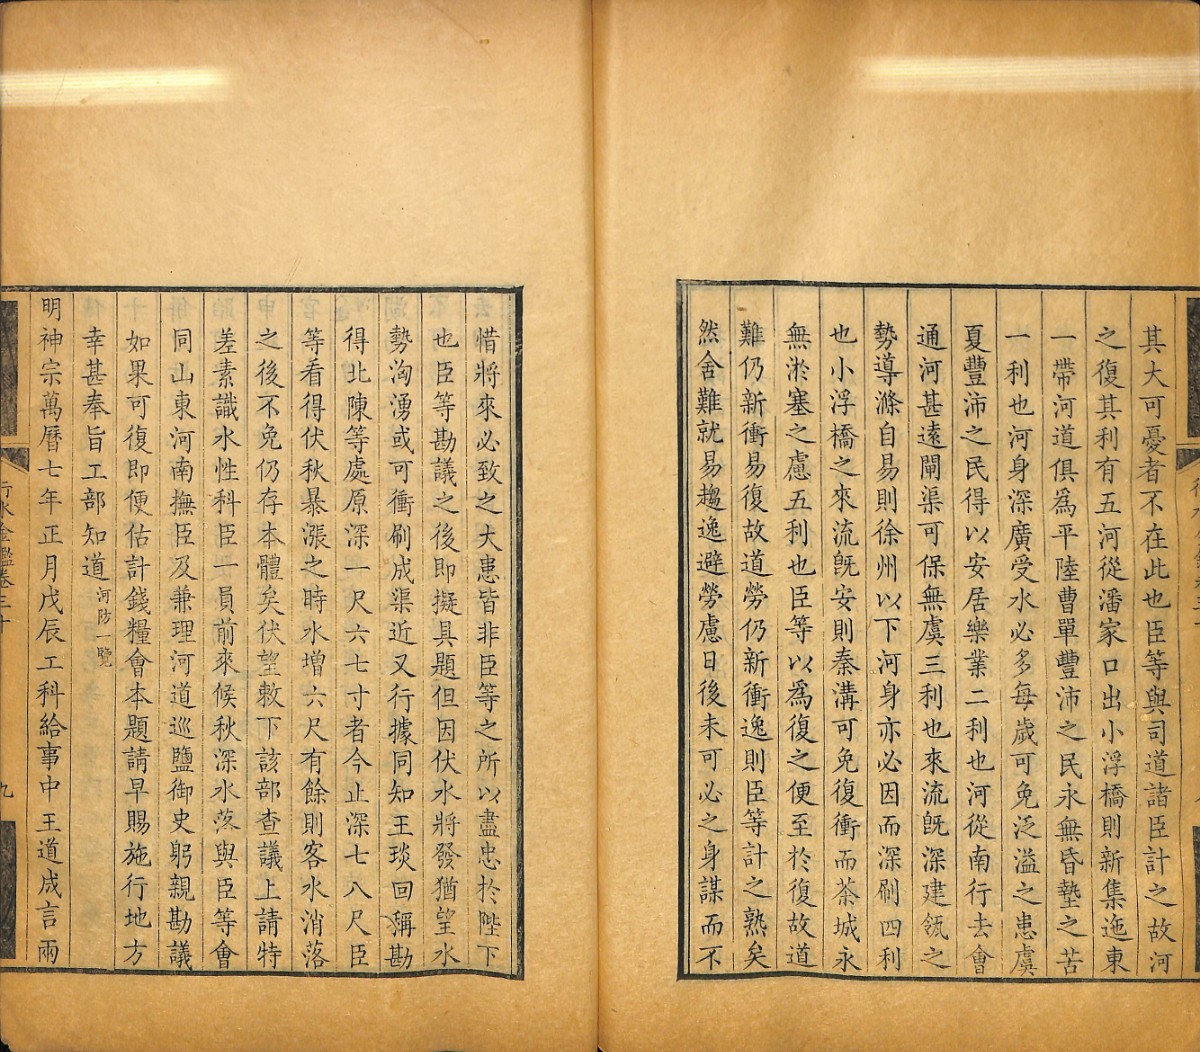 其大可憂者不在此也臣等與司道諸臣計之故河
之復其利有五河從潘家口出小浮橋則新集迤東
一帶河道俱爲平陸曹單豐沛之民永無昏墊之苦
一利也河身深廣受水必多每歲可免泛溢之患虞
夏豐沛之民得以安居樂業二利也河從南行去會
通河甚遠閘渠可保無虞三利也來流旣深建瓴之
勢導滌自易則徐州以下河身亦必因而深刷四利
也小浮橋之來流旣安則秦溝可免復衝而茶城永
無淤塞之慮五利也臣等以爲復之便至於復故道
難仍新衝易復故道勞仍新衝逸則臣等計之熟矣
然舍難就易趨逸避勞慮日後未可必之身謀而不
惜將來必致之大患皆非臣等之所以盡忠於陛下
也臣等勘議之後即擬具題但因伏水將發猶望水
勢洶湧或可衝刷成渠近又行據同知王琰回稱勘
得北陳等處原深一尺六七寸者今止深七八尺臣
等看得伏秋暴漲之時水增六尺有餘則客水消落
之後不免仍存本體矣伏望敕下該部查議上請特
差素識水性科臣一員前來候秋深水落與臣等會
同山東河南撫臣及兼理河道巡鹽御史躬親勘議
如果可復即便估計錢糧會本題請早賜施行地方
幸甚奉旨工部知道河防一覽
明神宗萬曆七年正月戊辰工科給事中王道成言兩
行水金鑑卷三十
九